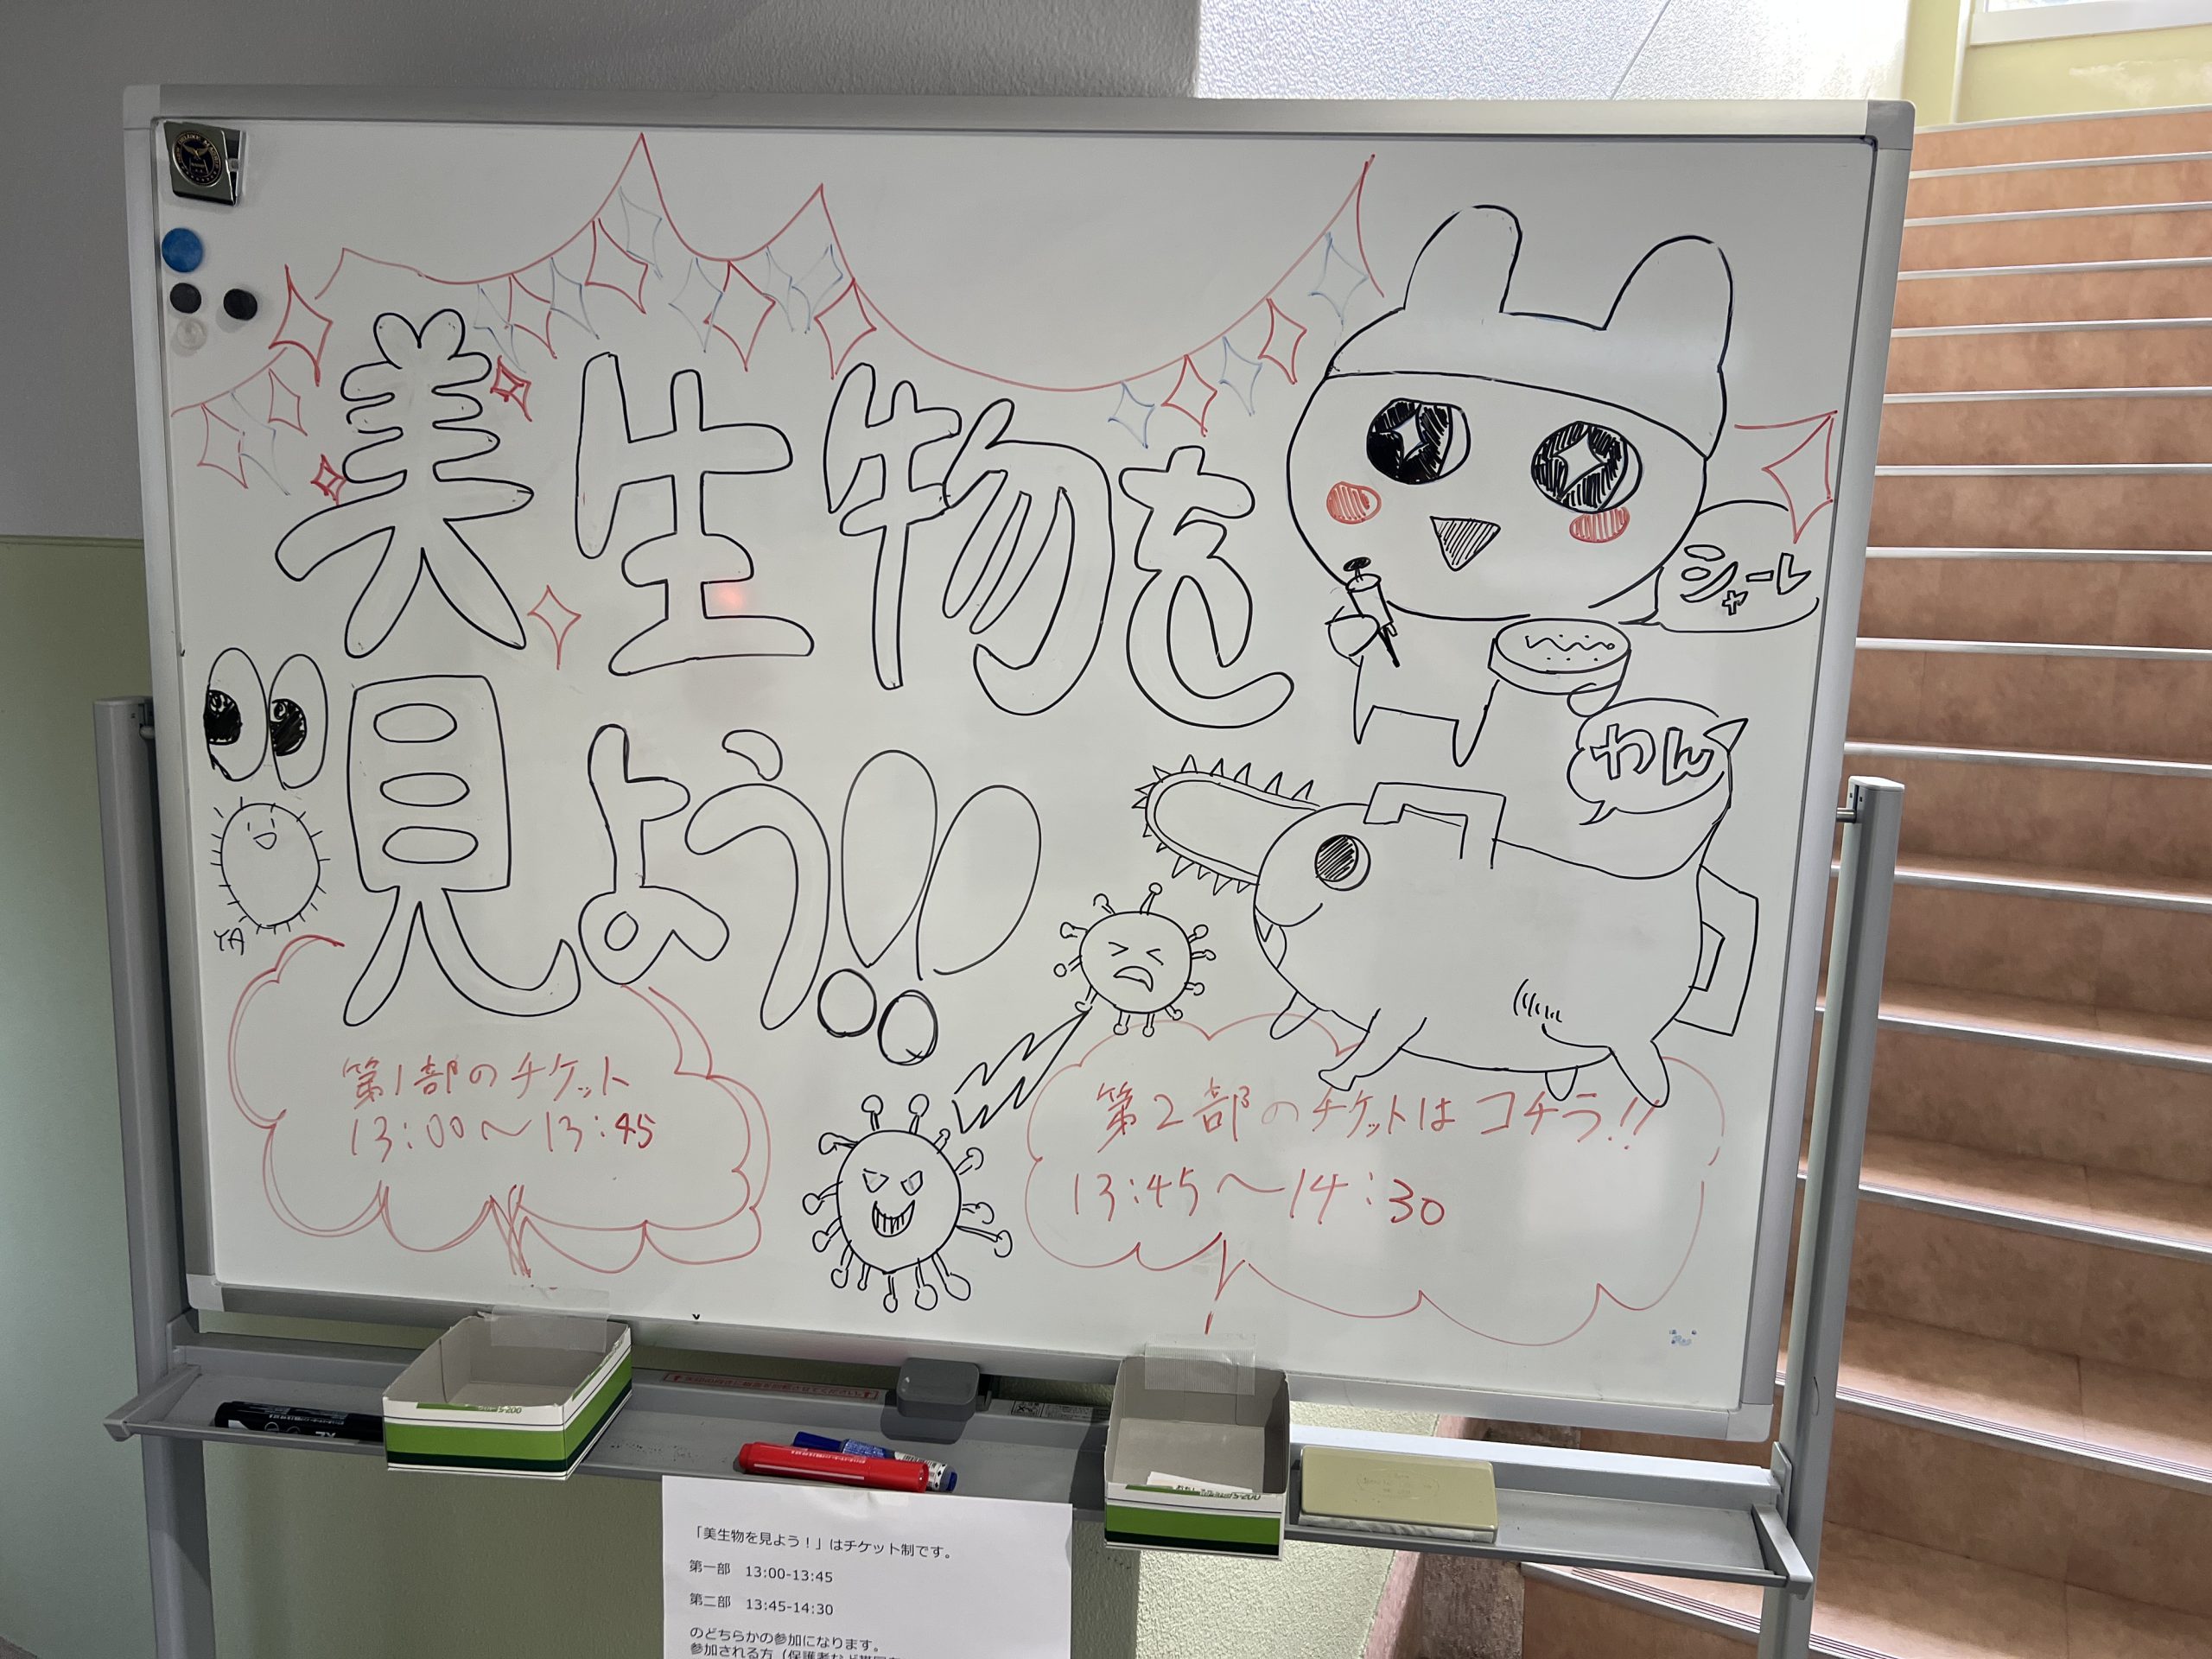 美生物を
見よう!!
シャーレ
わん
YA
第1部のチケット
13:00〜13:45
第2部のチケットはコチラ!!
13:45〜14:30
「美生物を見よう！」はチケット制です。
第一部 13:00-13:45
第二部 13:45-14:30
のどちらかの参加になります。
参加される方（保護者など